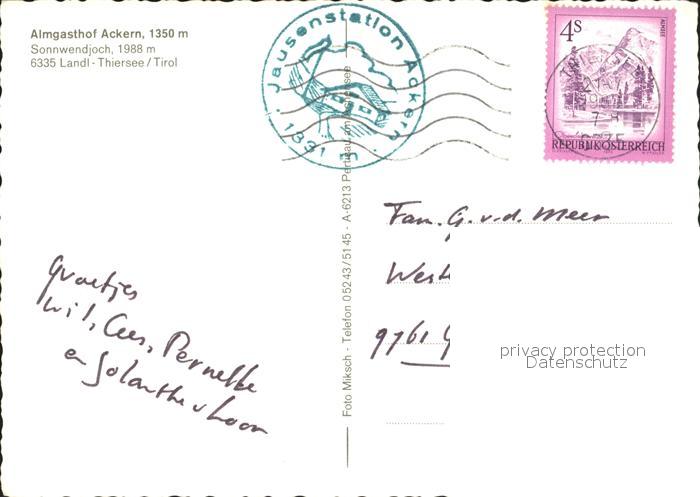 Almgasthof Ackern, 1350 m
Sonnwendjoch, 1988 m
6335 Landl - Thiersee / Tirol
Jausenstation Ackern
1331 m
4S
ALMSEE
REPUBLIK ÖSTERREICH
Foto Miksch - Telefon 05243/5145 - A-6213 Pertisau am Achensee
Fam. G. v.d. Meer
West
9761 G
Groetjes
Wil, Cees, Pernette
en Jolanthe v Loon
privacy protection
Datenschutz